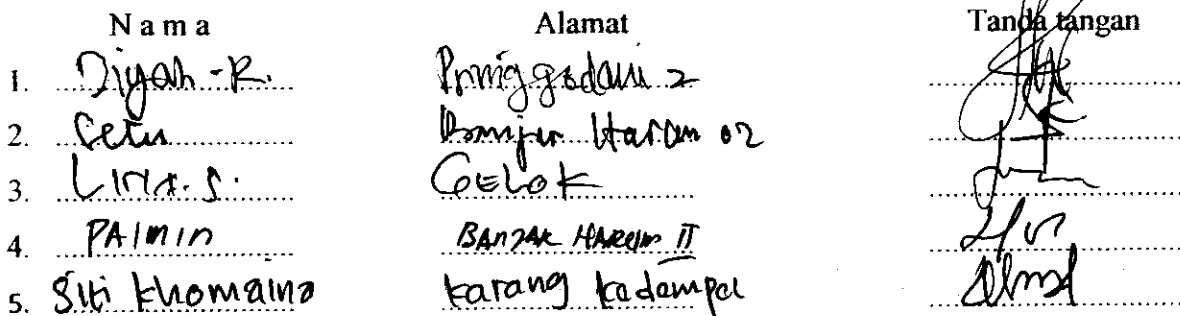 N a m a Alamat Tanda tangan
1. Diyah - R. Pringgodani 2
2. Setu Banjar Harum 02
3. Lina. S. GELOK
4. PAIMIN BANJAR HARUM II
5. Siti Khomaina karang kedempel